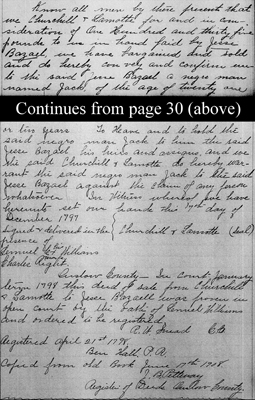 Know all men by these presents that
we Churchill & Lamotte for and in con-
sideration of One Hundred and thirty five
pounds to us in hand paid by Jesse
Bazael we have bargained and sold
and do hereby convey and confirm unto
to the said Jesse Bazael a negro man
named Jack of the age of twenty one
Continues from page 30 (above)
or two years To Have and to hold the
said negro man Jack to him the said
Jesse Bazael his heirs and assigns and we
the said Churchill & Lamotte do hereby war-
rant the said negro man Jack to the said
Jesse Bazael against the claim of any person
whatever In Witness whereof we have
hereunto set our hands this 7th day of
December 1797
Signed & delivered in the Churchill & Lamotte (seal)
presence of
Samuel Williams
Charles
Onslow County — In court January
term 1798 this deed of sale from Churchill
& Lamotte to Jesse Bazaell was proven in
open court by the oath of Samuel Williams
and ordered to be registered
R. W. Snead
Registered April 21st 1798
Ben Hall, P.R.
Copied from Old Book June 1908
Register of Deeds Onslow County